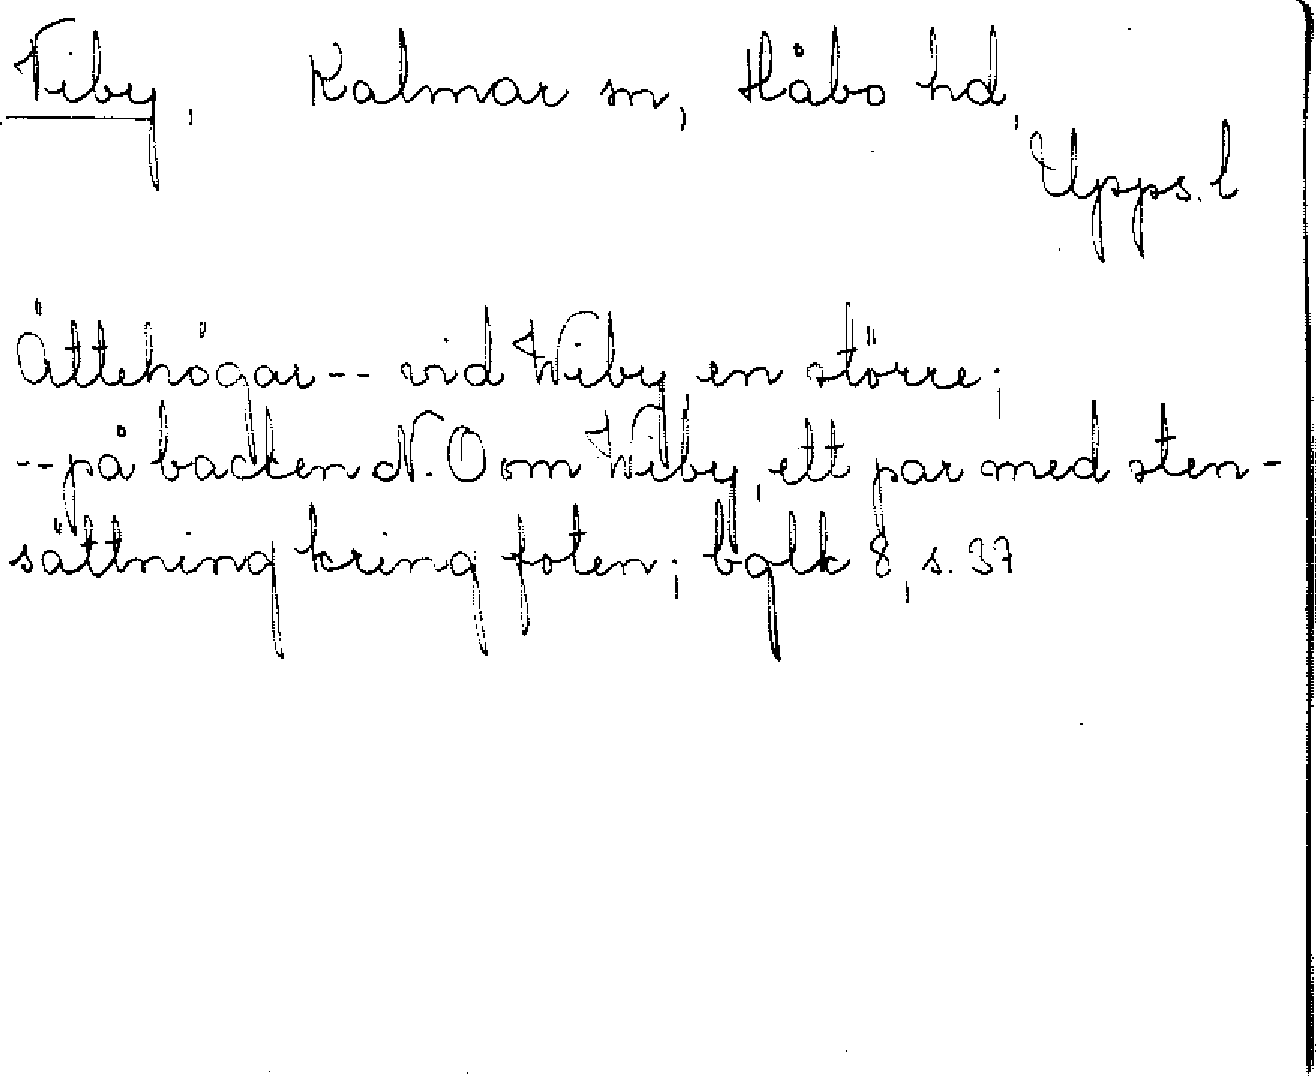 Viby, Kalmar sn, Håbo hd,
Upps. l
Ättehögar -- vid Wiby en större;
-- på backen N.O om Wiby, ett par med sten-
sättning kring foten; bglk 8, s. 37